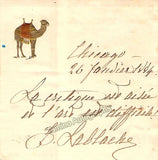 Chicago
26 Janvier 1884
La critique est aisée
et l'art est difficile
L. Lablache